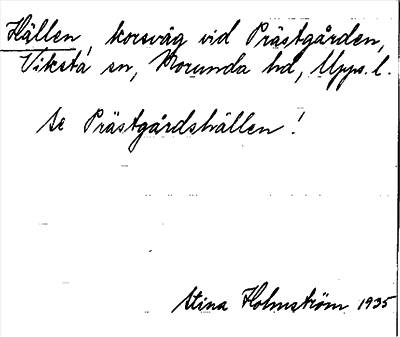 Hällen korsväg vid Prästgården,
Viksta sn, Norunda hd, Upps. l.
Se Prästgårdshällen!
Stina Holmström 1935